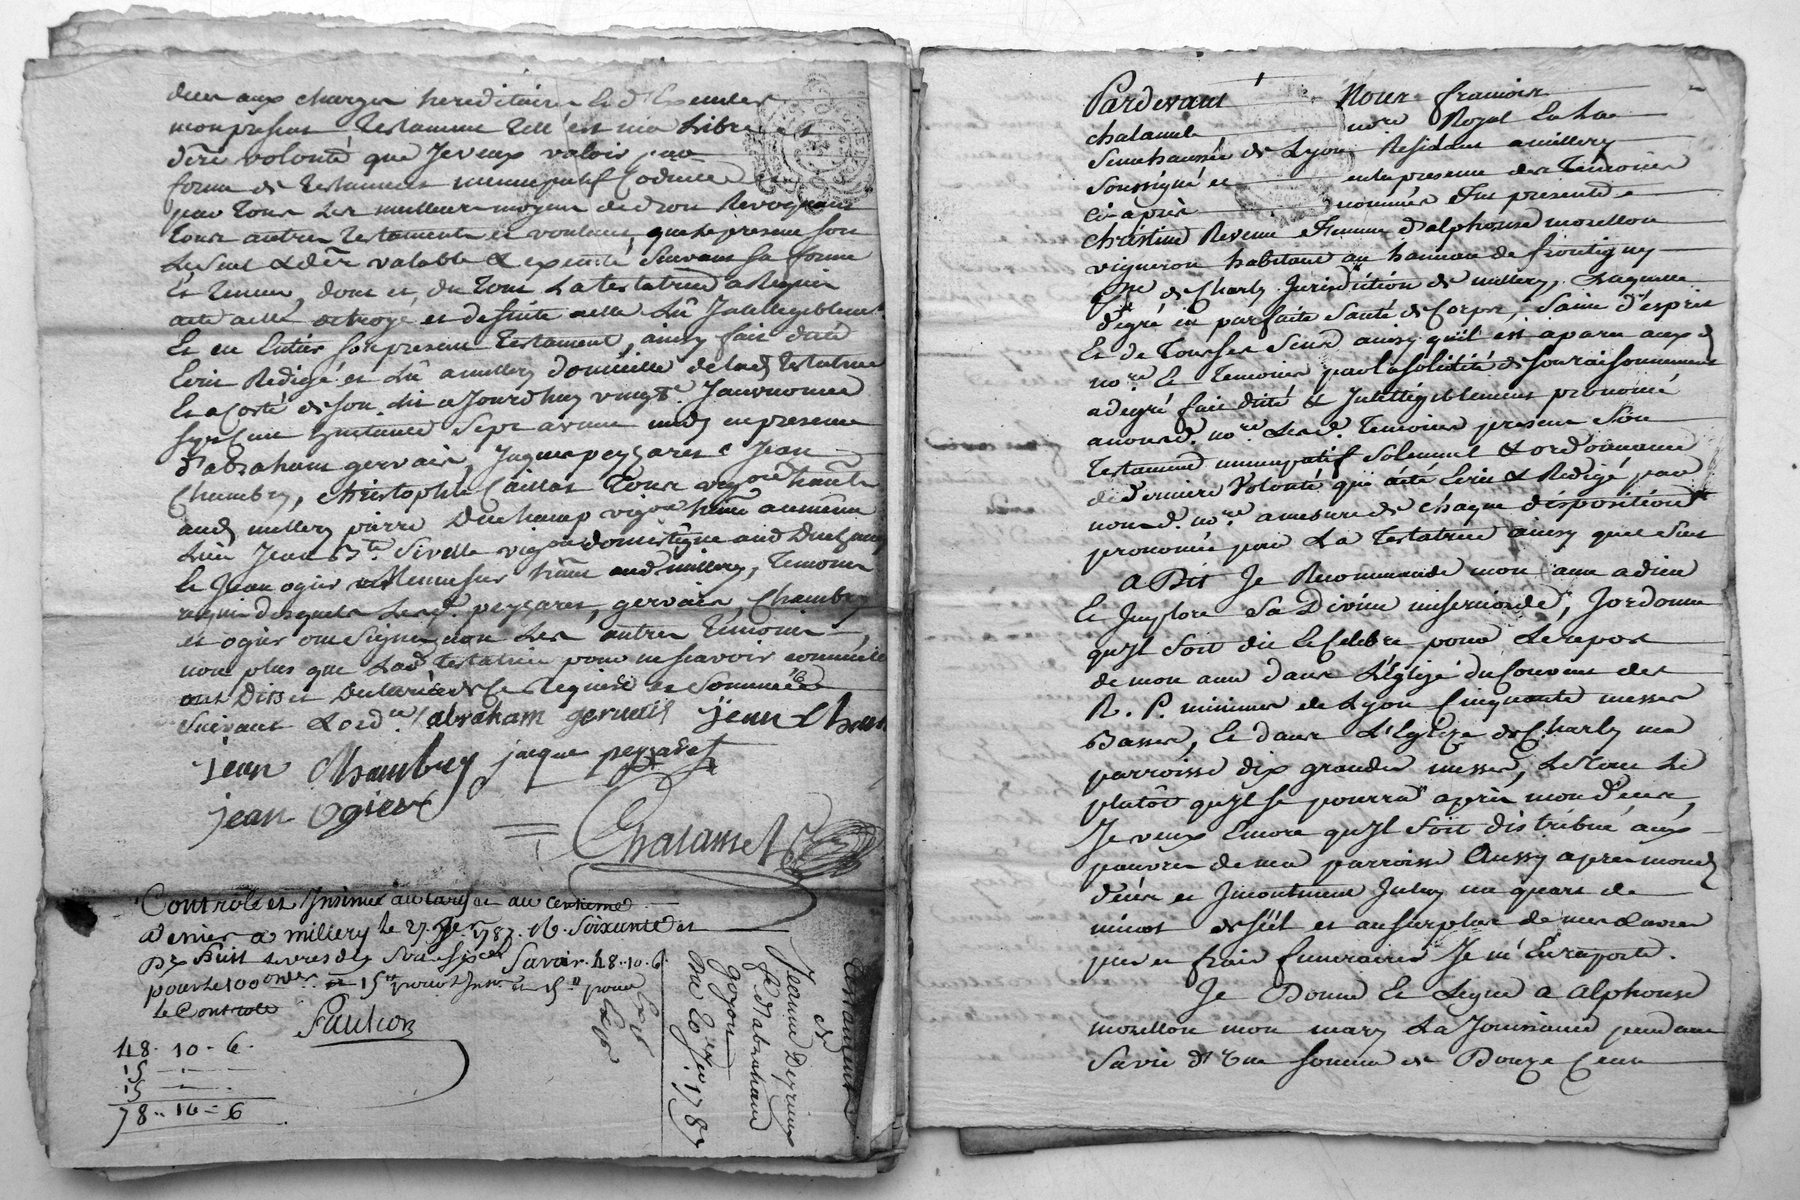 dicer aux charges hereditaires Et d'Executer
mon present Testament Tell'est ma Libre et
d.re volonté que Je veux valoir par
forme de testament nuncupatif Codicile et
par Tous Les meilleurs moyens de droit Revoquant
tous autres testaments et voulant que Le present soit
Le Seul & d.er valable & executé Suivant Sa forme
Et teneur, dont et du tout La testatrice a Requis
acte a elle octroyé et de suite a elle Lû Intelligiblement
Et en Entier son present testament, ainsy fait dicté
Ecrit Redigé et Lû a millery domicille de lad. testatrice
Et a Costé de son lit ce Jourd'huy vingt Janvier mil
Sept cent quatrevingt Sept avant midy en presence
d'abraham gervais, Jaques peyzaret & Jean
Chambry, christophle Caillat tous vig.ons hants
aud. millery pierre Duchamp vigon hant au meme
Lieu Jean B.te Sivelle vigon domestique aud. Duchamp
Et Jean ogier Menusier hant aud. millery, temoins
requis desquels Lesd. peyzaret, gervais, Chambry
et ogier ont Signé, non Les autres temoins
non plus que Lad. testatrice pour ne scavoir comme ils
ont Dit et Declaré de Ce Requis et Sommés
Suivant L'ord.ce / abraham gervais jean Cham
jean Chambry jaque peyzaret
jean Ogier
Chalamel
Controlé et Insinué au tarif et au centieme
Denier a millery le 27. 1787. R. Soixante et
Dix huit Livres dix Sols Six d. Savoir 48..10..6.
pour Le 100.e d.er 15.# pour L'Ins. et 15.# pour
Le Controle
Paulion
48.. 10.. 6.
15
15
78.. 10 = 6
testament
de
Jeanne
f.e d'abraham
goyon
1787
Pardevant Nous francois
chalamel no.re Royal En La
Senechaussée de Lyon Residant a millery
Soussigné et en la presence des temoins
Ci apres nommés Fut presente
christine Revenu Femme d'alphonse mozellon
vigneron habitant au hameau de frontigny
P.sse de Charly Jurisdiction de millery, Laquelle
de gré en parfaite Santé de Corps, Saine d'esprit
Et de tous ses Sens ainsy qu'il est aparu aud.
no.re Et temoins par la solidité de son raisonnement
a de gré fait dicté & Intelligiblement prononcé
a nousd. no.re Lesd. temoins present Son
Testament nuncupatif Solemnel & ordonnance
de derniere Volonté qui a été Ecrit & Redigé par
nousd. no.re a mesure de chaque disposition
prononcée par La testatrice ainsy que Suit
a Dit Je Recommande mon ame a dieu
Et Implore Sa Divine misericorde, J'ordonne
qu'il Soit dit Et Celebré pour Le repos
de mon ame dans L'Eglise du Couvent des
R. P. minimes de Lyon Cinquante messes
Basses, Et dans L'Eglize de Charly ma
parroisse dix grandes messes, Le tout Le
plutôt qu'il se pourra après mon deces,
Je veux Encore qu'il Soit distribué aux
pauvres de ma parroisse Aussy apres mond.
deces et Incontinent Iceluy un quart de
minot de Sel et au surplus de mes œuvres
pies et frais funeraires Je m'En raporte.
Je Donne Et Legue a alphonse
mozellon mon mary La Jouissance pendant
Sa vie d'Une Somme de Douze Cent